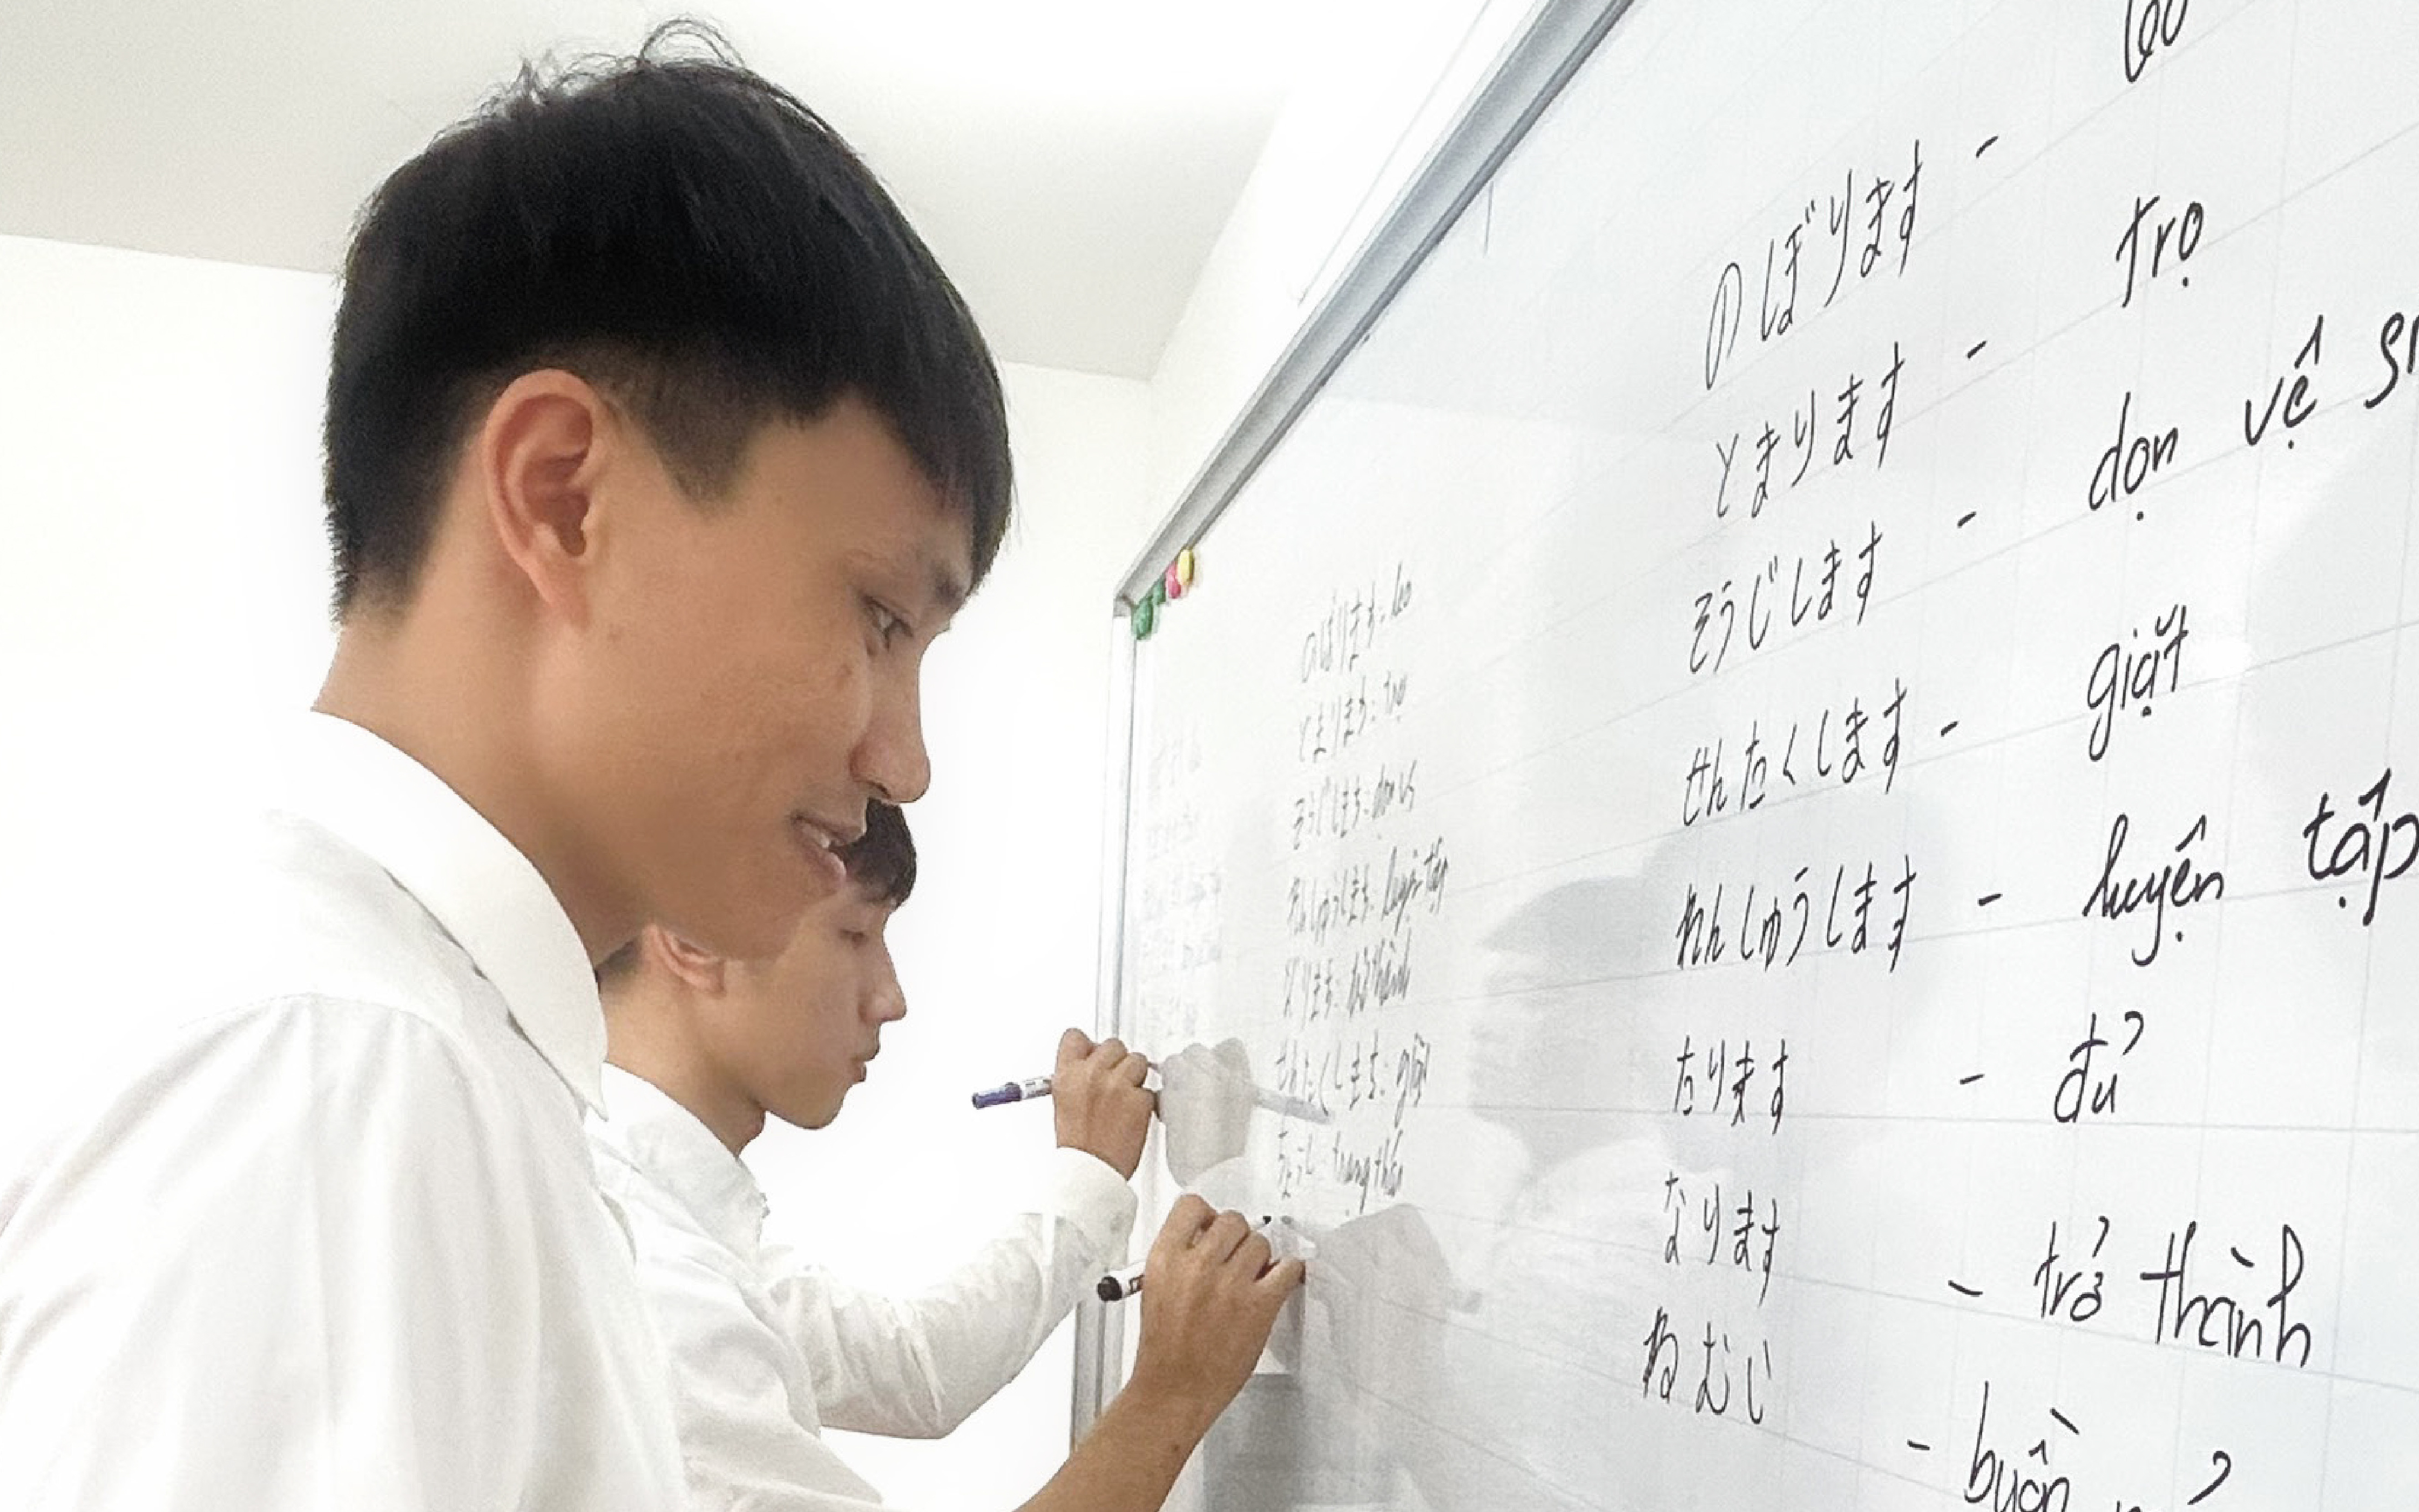 のぼります: leo
とまります: trọ
そうじします: dọn vs
れんしゅうします: luyện tập
なります: trở thành
せんたくします: giặt
のぼります -
とまります - trọ
そうじします - dọn vệ
せんたくします - giặt
れんしゅうします - luyện tập
たります - đủ
なります - trở thành
ねむい - buồn